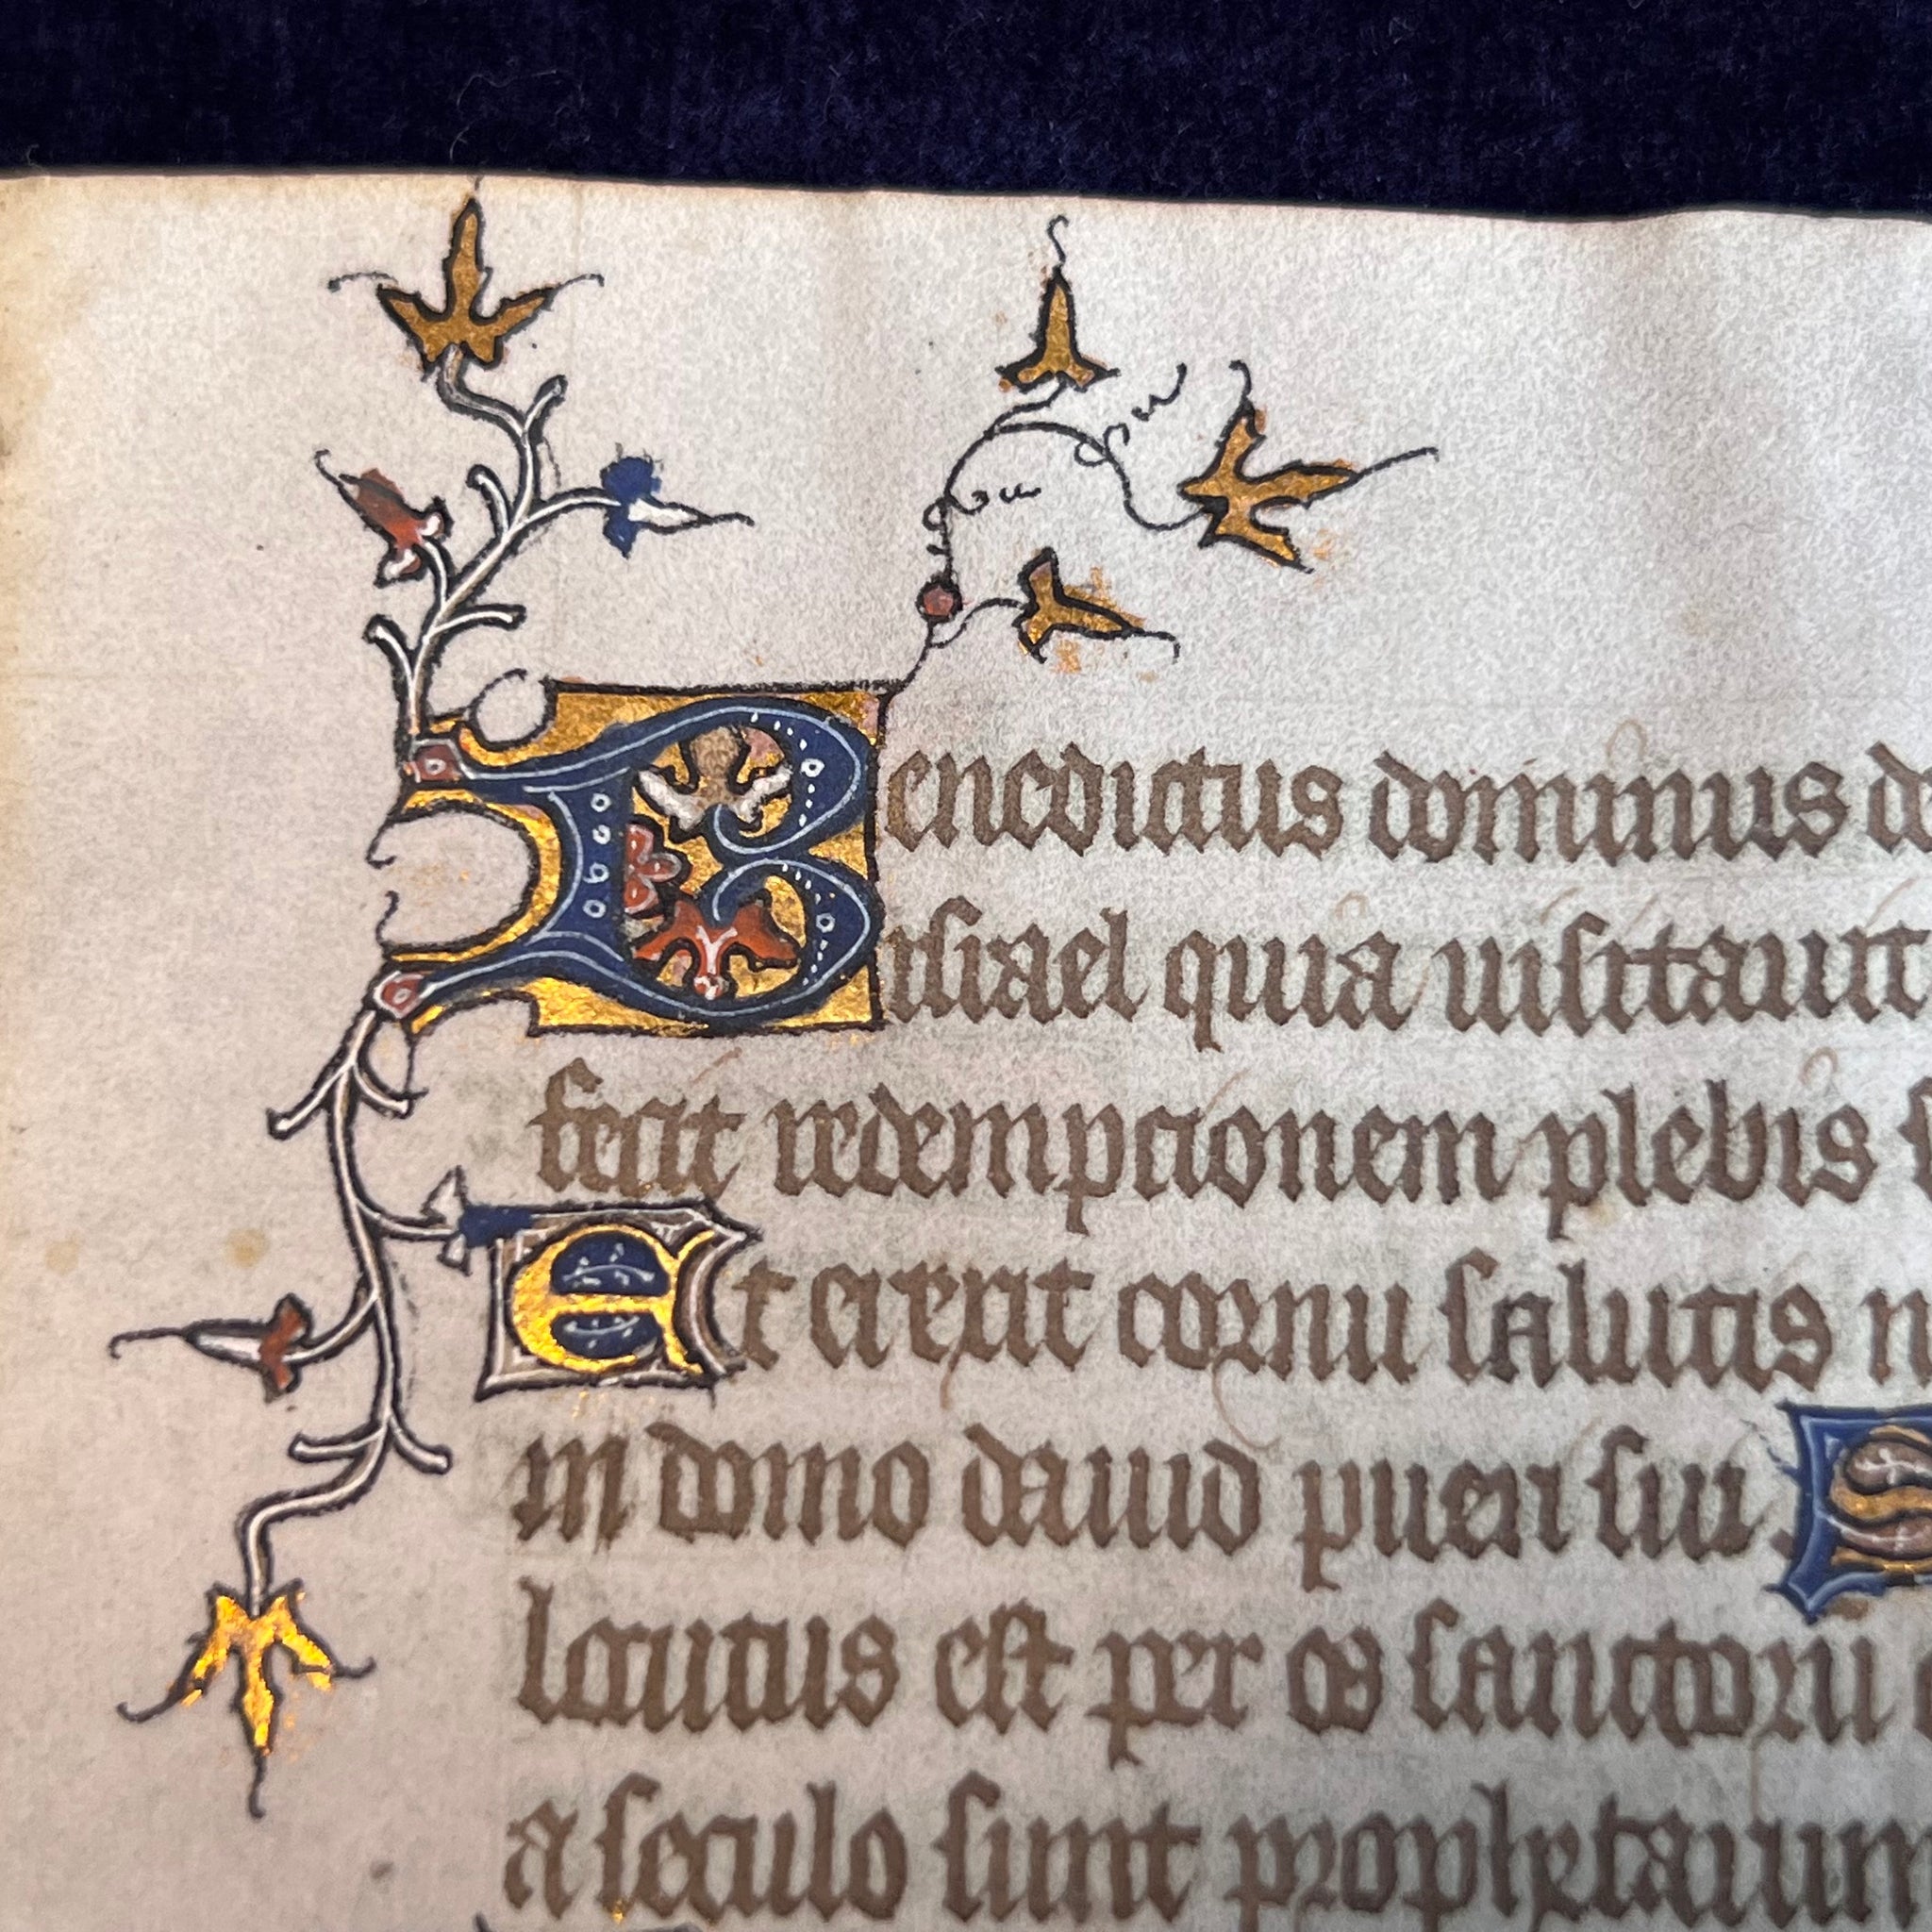 Benedictus dominus d
israel quia uisitauit
fecit redempcionem plebis s
Et erexit cornu salutis n
in domo dauid pueri sui. S
locutus est per os sanctorũ
a seculo sunt prophetarum